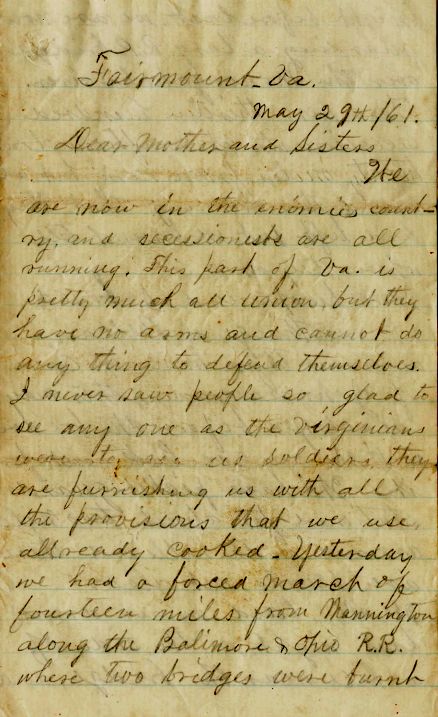 Fairmount - Va.
May 29th /61.
Dear Mother and Sisters
We
are now in the enimies count-
ry, and secessionests are all
running. This part of Va. is
pretty much all union, but they
have no arms and cannot do
any thing to defend themselves.
I never saw people so glad to
see any one as the virginians
were to see us soldiers, they
are furnishing us with all
the provisions that we use,
allready cooked - Yesterday
we had a forced march of
fourteen miles from Mannington
along the Balimore & Ohio R.R.
where two bridges were burnt